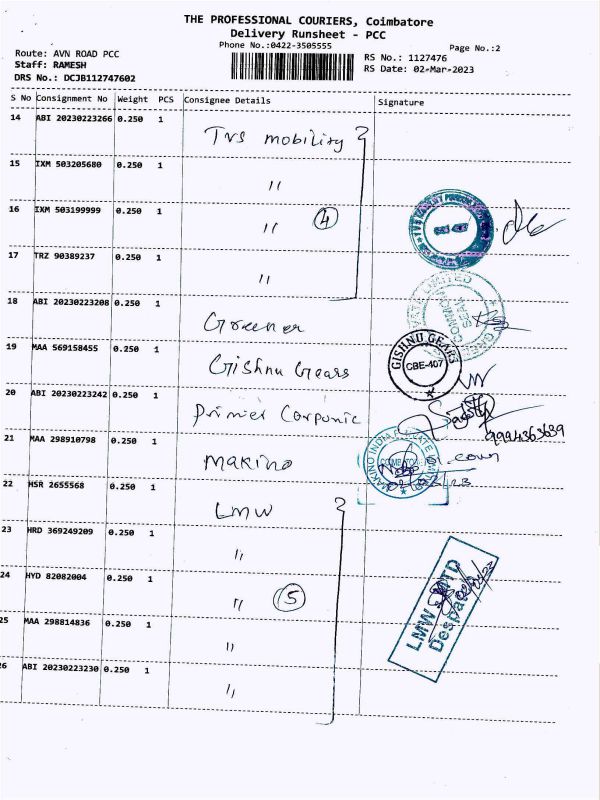 THE PROFESSIONAL COURIERS, Coimbatore
Delivery Runsheet - PCC
Phone No.:0422-3505555
Page No.:2
Route: AVN ROAD PCC
Staff: RAMESH
DRS No.: DCJB112747602
RS No.: 1127476
RS Date: 02-Mar-2023
S No Consignment No Weight PCS Consignee Details Signature
14 ABI 20230223266 0.250 1 TVS mobility
15 IXM 503205680 0.250 1 〃
16 IXM 503199999 0.250 1 〃 4
17 TRZ 90389237 0.250 1 〃
18 ABI 20230223208 0.250 1 Greener
19 MAA 569158455 0.250 1 Gishnu Gears
GISHNU GEARS
CBE-407
20 ABI 20230223242 0.250 1 Primier Carponic
9994363639
21 MAA 298910798 0.250 1 Makino
22 HSR 2655568 0.250 1 LMW
23 HRD 369249209 0.250 1 〃
24 HYD 82082004 0.250 1 〃 5
25 MAA 298814836 0.250 1 〃
26 ABI 20230223230 0.250 1 〃
LMW - MTD
Despatch